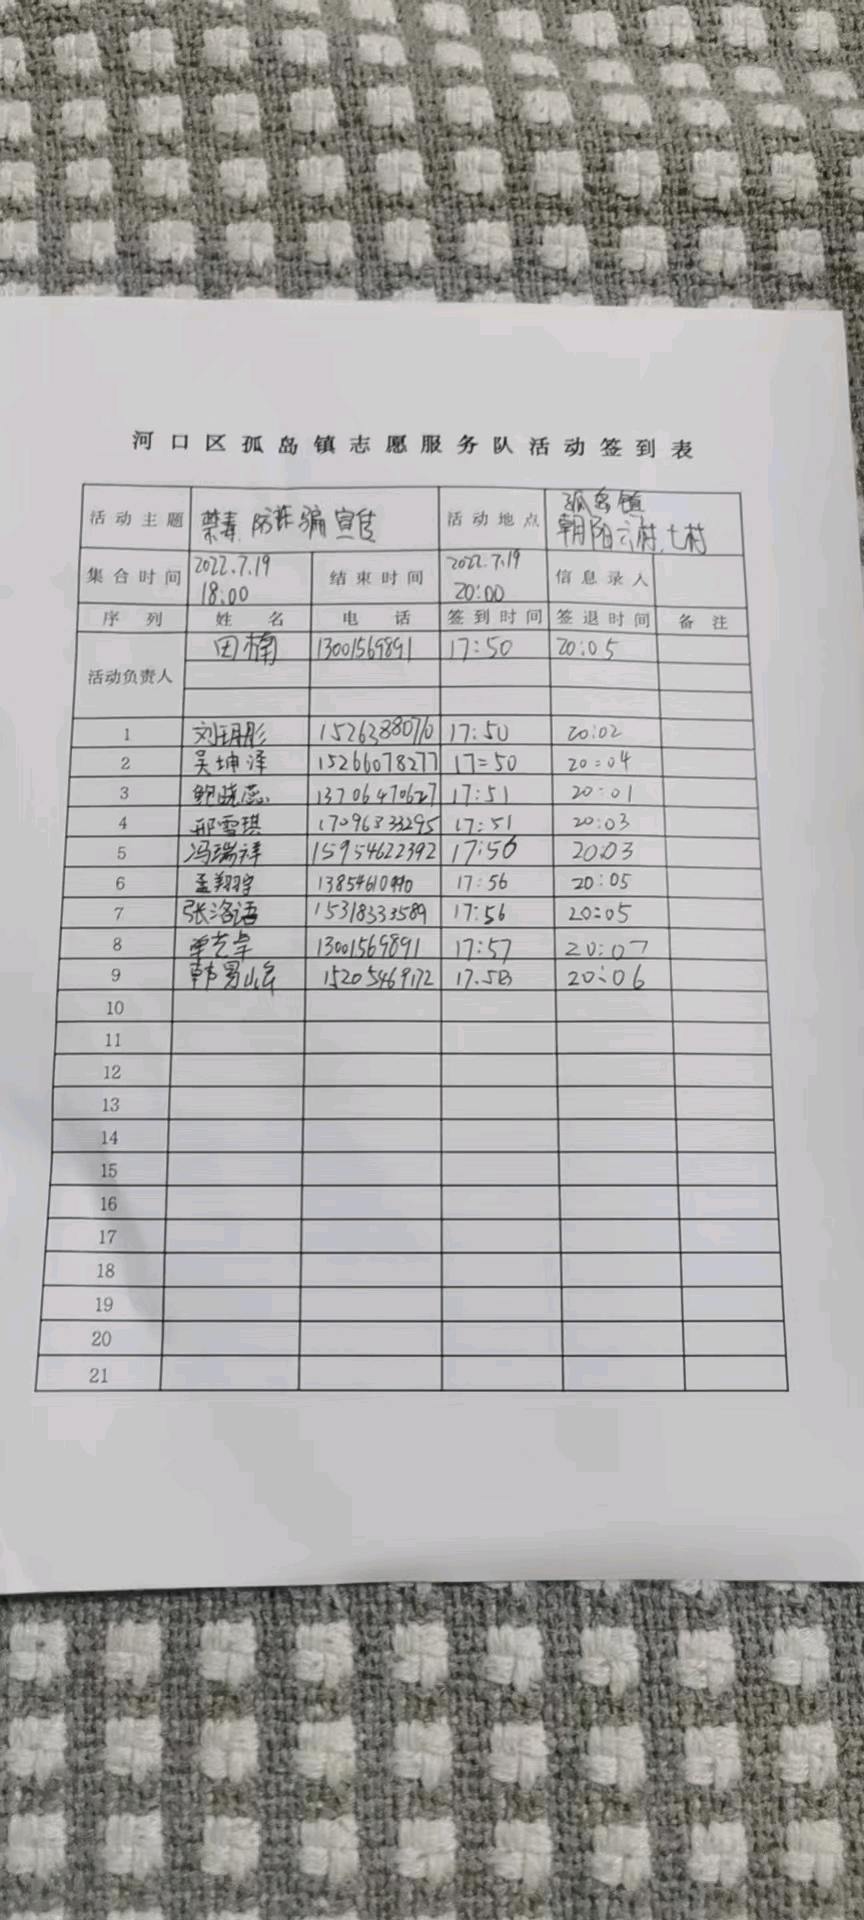 河口区孤岛镇志愿服务队活动签到表
活动主题 禁毒、防诈骗宣传 活动地点 孤岛镇朝阳六村、七村
集合时间 2022.7.19 18:00 结束时间 2022.7.19 20:00 信息录入
序列 姓名 电话 签到时间 签退时间 备注
活动负责人 田楠 13001569891 17:50 20:05
1 刘玥彤 15263880710 17:50 20:02
2 吴坤泽 15266078277 17:50 20:04
3 鲍晓蕊 13706470627 17:51 20:01
4 邢雪琪 17096333295 17:51 20:03
5 冯瑞祥 15954622392 17:56 20:03
6 孟翔宇 17:56 20:05
7 张洛语 15318333589 17:56 20:05
8 13001569891 17:57 20:07
9 15205469172 17.58 20:06
10
11
12
13
14
15
16
17
18
19
20
21